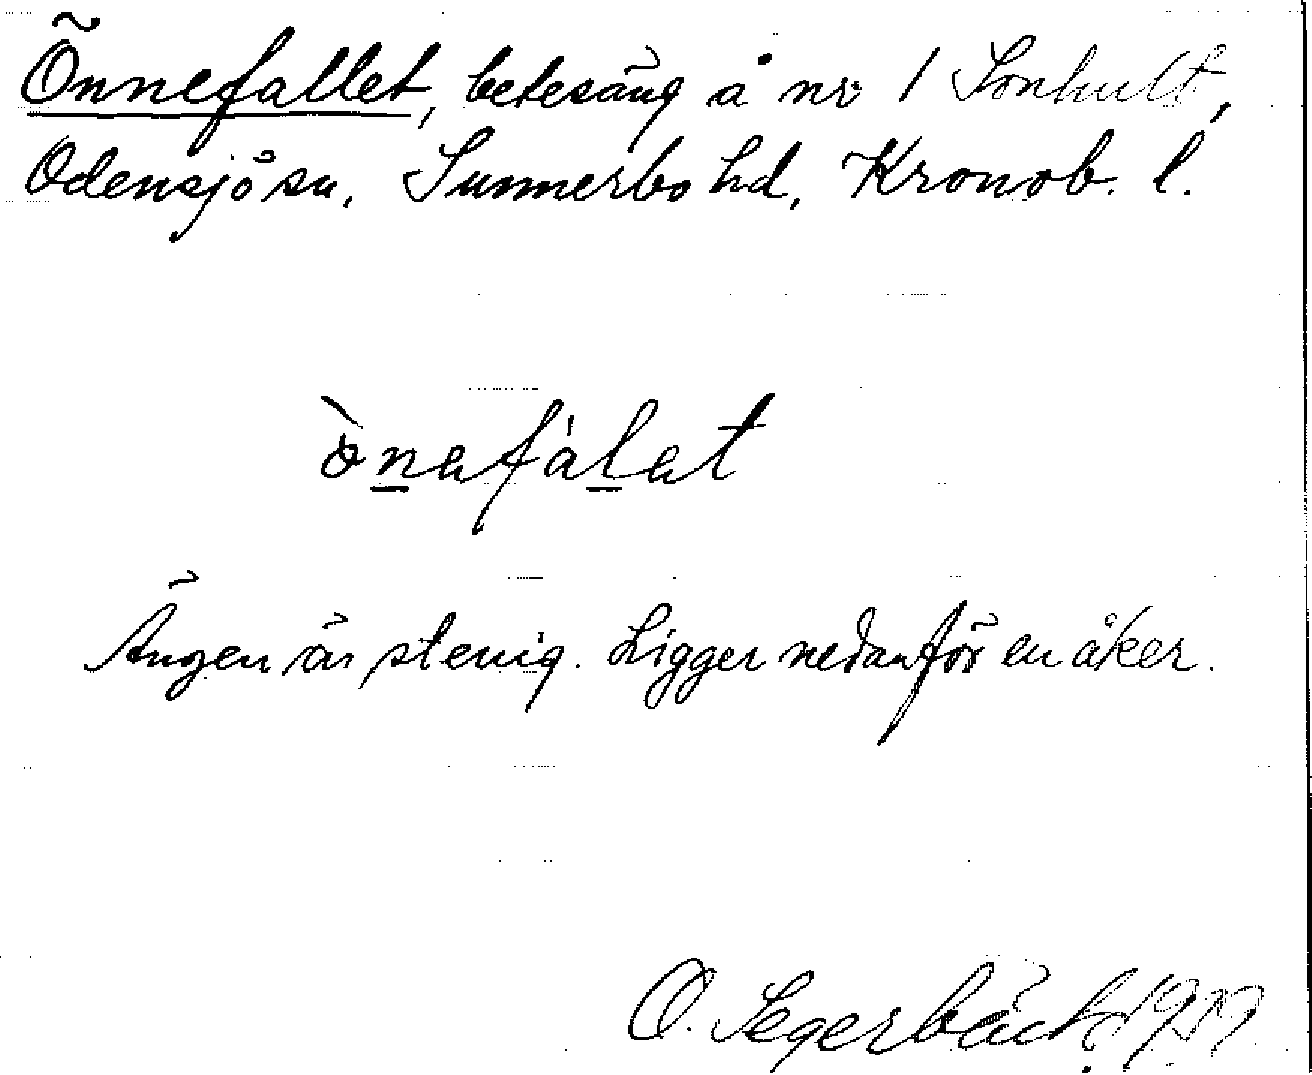 Önnefallet, betesäng å nr 1 Sonhult,
Odensjö sn, Sunnerbo hd, Kronob. l.
ònafálat
Ängen är stenig. Ligger nedanför en åker.
O. Segerbäck